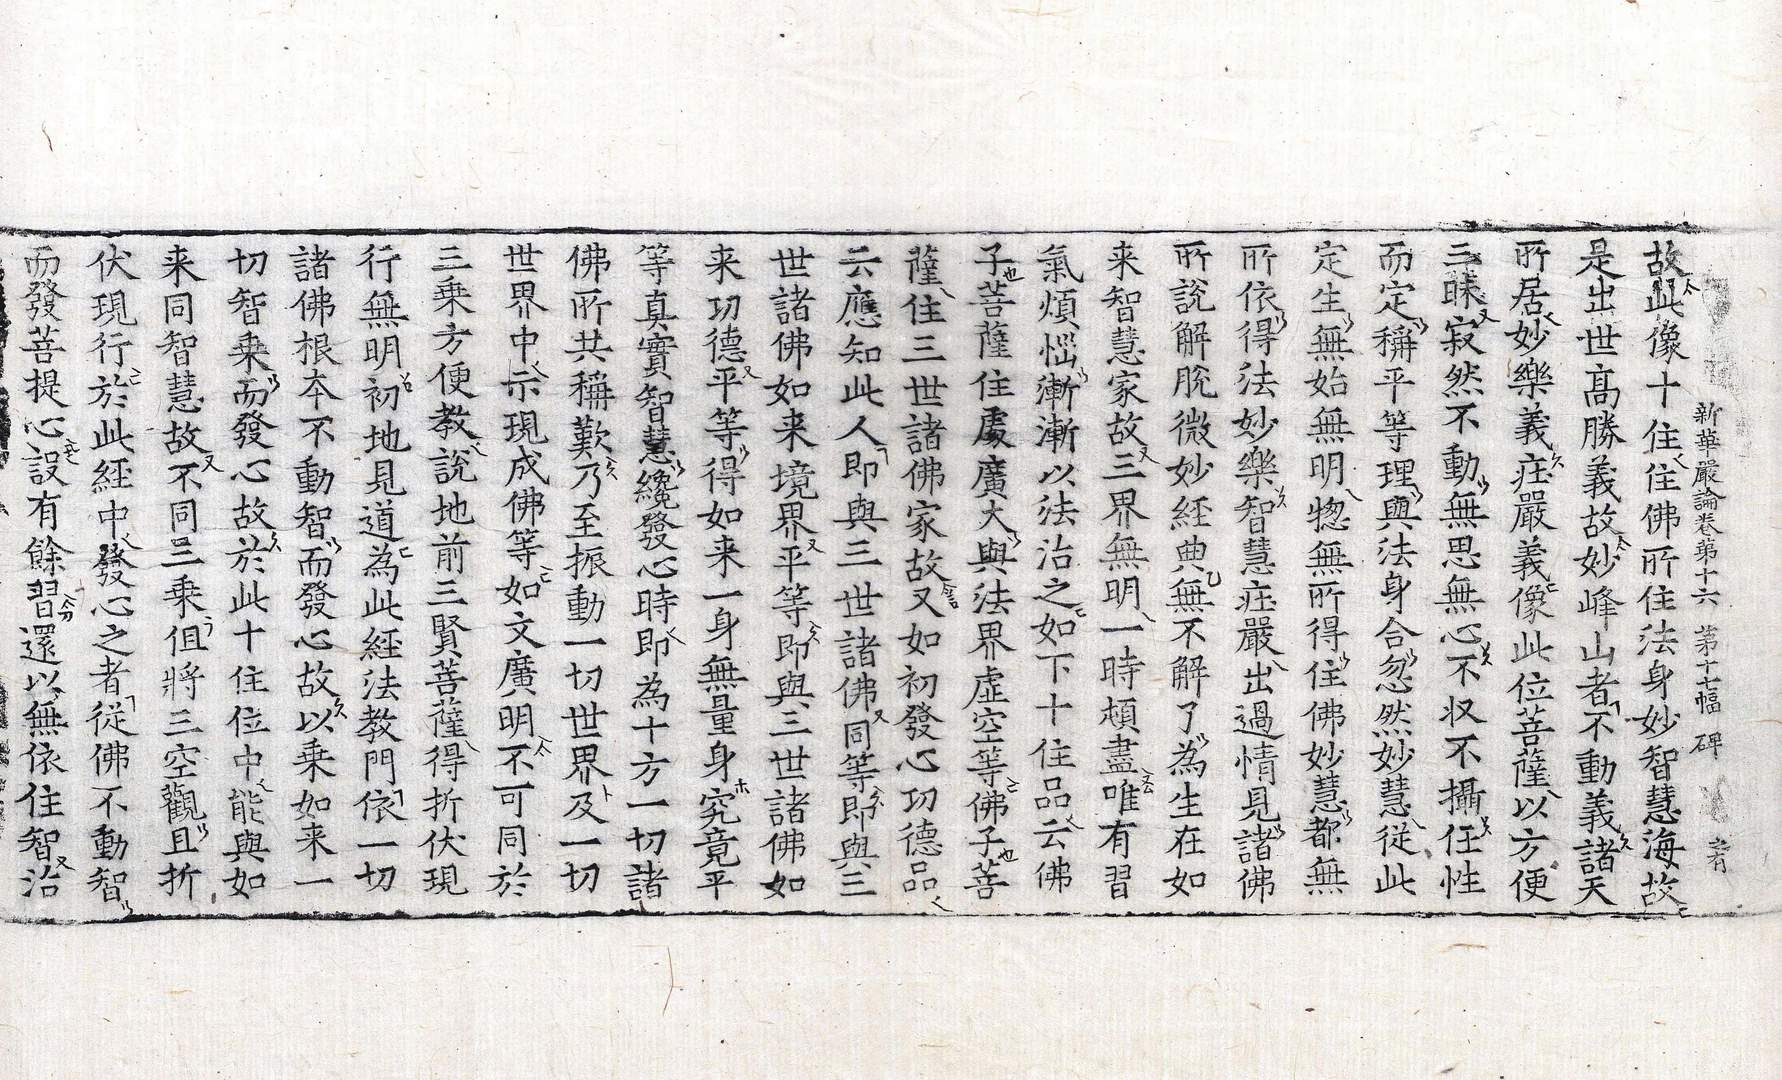 新華嚴論卷第十六 第十七幅 碑
故此像十住住佛所住法身妙智慧海故
是出世高勝義故妙峰山者不動義諸天
所居妙樂義症嚴義像此位菩薩以方便
三昧寂然不動無思無心不収不攝任性
而定稱平等理與法身合忽然妙慧從此
定生無始無明惣無所得住佛妙慧都無
所依得法妙樂智慧症嚴出過情見諸佛
所說解脫微妙経典無不解了為生在如
来智慧家故三界無明一時頓盡唯有習
氣煩惱漸漸以法治之如下十住品云佛
子菩薩住處廣大與法界虛空等佛子菩
薩住三世諸佛家故又如初發心功德品
云應知此人即與三世諸佛同等即與三
世諸佛如来境界平等即與三世諸佛如
来功德平等得如来一身無量身究竟平
等真實智慧纔發心時即為十方一切諸
佛所共稱歎乃至振動一切世界及一切
世界中示現成佛等如文廣明不可同於
三乗方便教說地前三賢菩薩得折伏現
行無明初地見道為此經法教門依一切
諸佛根夲不動智而發心故以乗如来一
切智乗而發心故於此十住位中能與如
来同智慧故不同三乗伹將三空觀且折
伏現行於此経中發心之者從佛不動智
而發菩提心設有餘習還以無依住智治